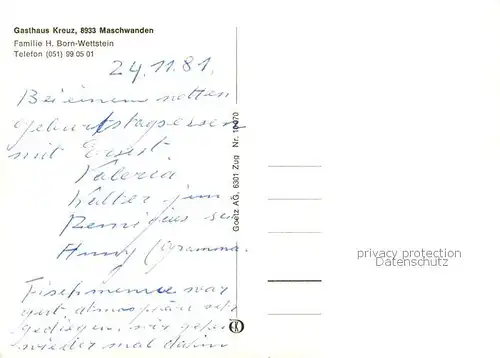 Gasthaus Kreuz, 8933 Maschwanden
Familie H. Born-Wettstein
Telefon (051) 99 05 01
24.11.81.
Bei einem netten
Geburtstagsessen
mit Ernst
Valeria
Walter jun
Remigius sen
Anny (Gramma.
Fischmenue war
gut atmosphäre sehr
gediegen, wir gehen
wieder mal dahin
Goetz AG, 6301 Zug Nr. 10470
privacy protection
Datenschutz